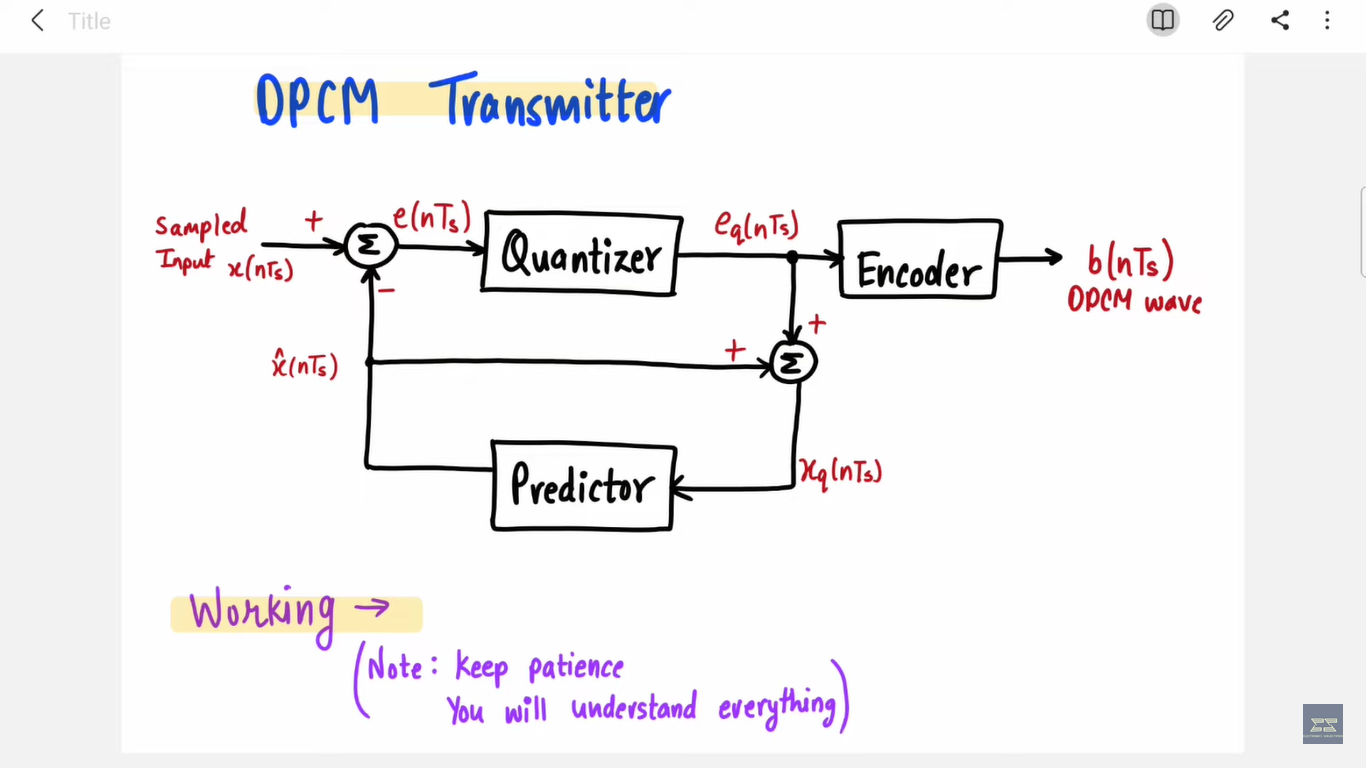 Title
DPCM Transmitter
Sampled
Input x(nTs)
+
Σ
e(nTs)
Quantizer
eq(nTs)
Encoder
b(nTs)
DPCM wave
−
+
x̂(nTs)
+
Σ
Predictor
xq(nTs)
Working →
(Note : Keep patience
You will understand everything)